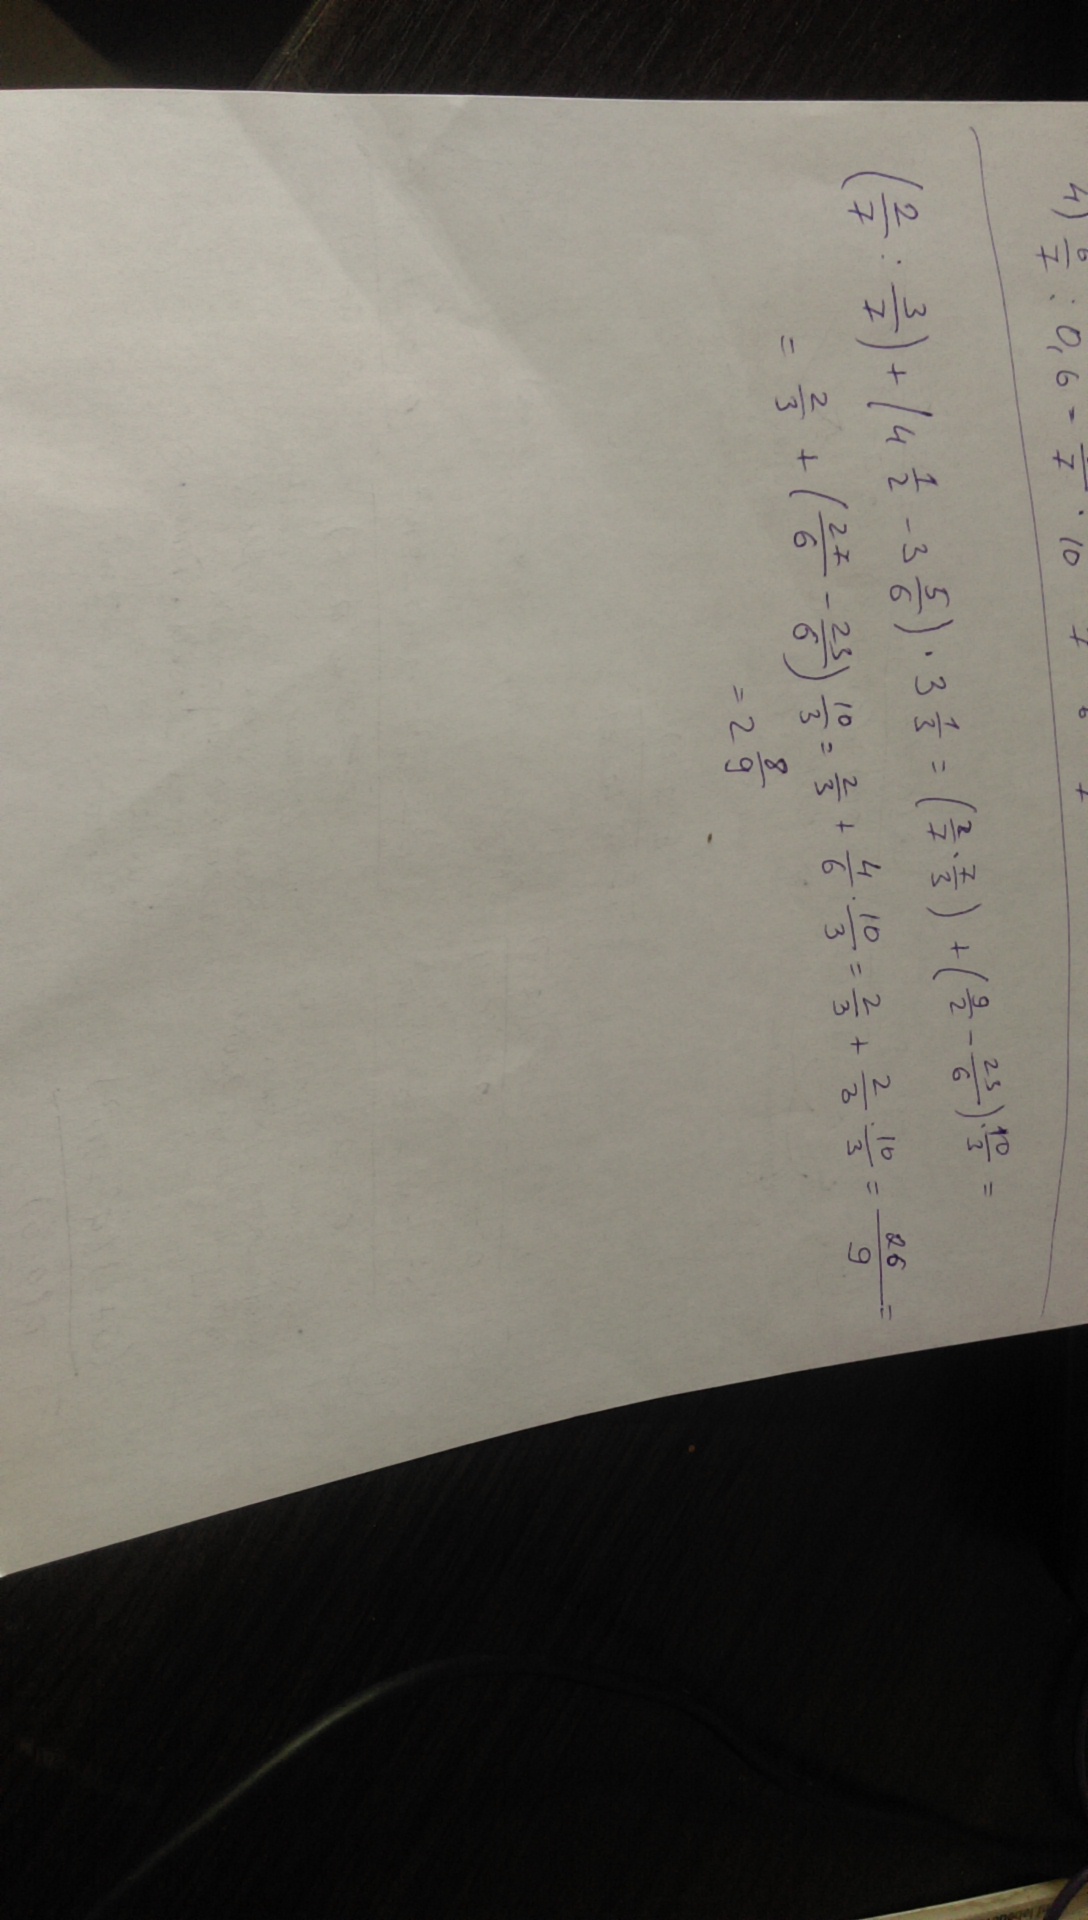 4) 6/7 : 0,6 = /7 · 10
(2/7 : 3/7) + (4 1/2 - 3 5/6) · 3 1/3 = (2/7 · 7/3) + (9/2 - 23/6) · 10/3 =
= 2/3 + (27/6 - 23/6) 10/3 = 2/3 + 4/6 · 10/3 = 2/3 + 2/3 · 10/3 = 26/9 =
= 2 8/9